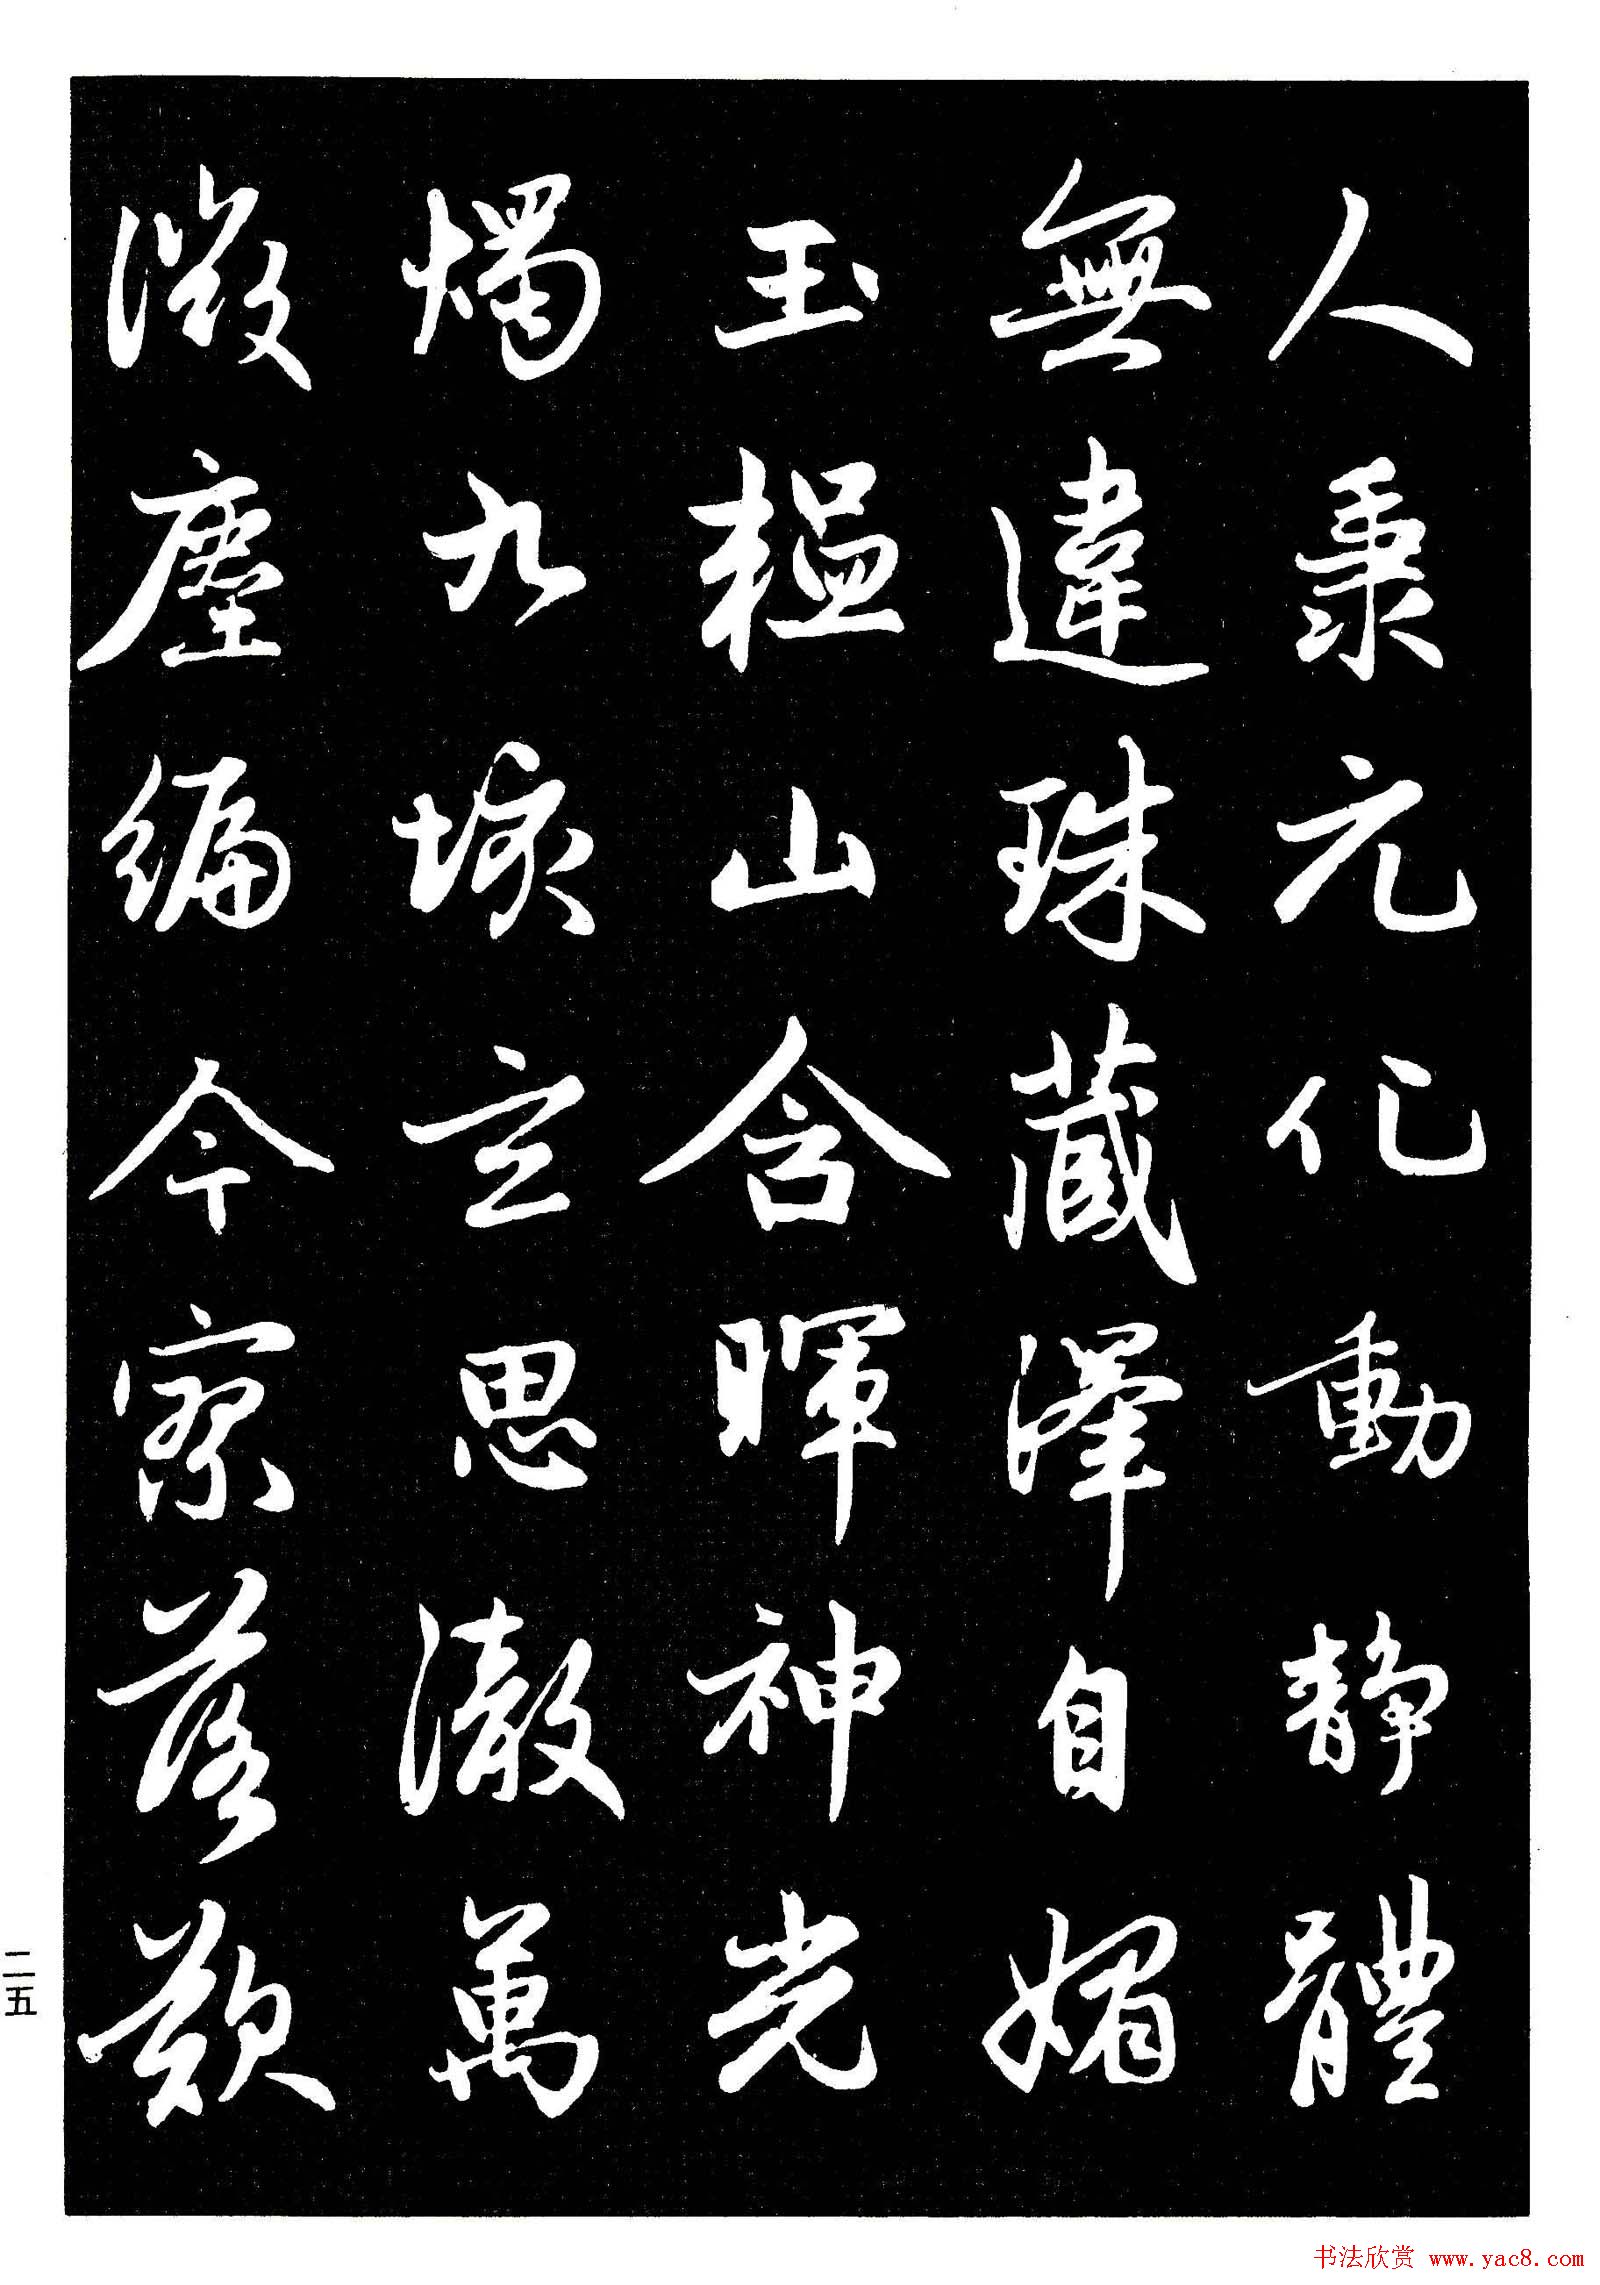 人秉元化動靜體
無違珠藏澤自媚
玉韞山含暉神光
燭九垓玄思澈萬
微塵編今察落歎
二五
书法欣赏 www.yac8.com